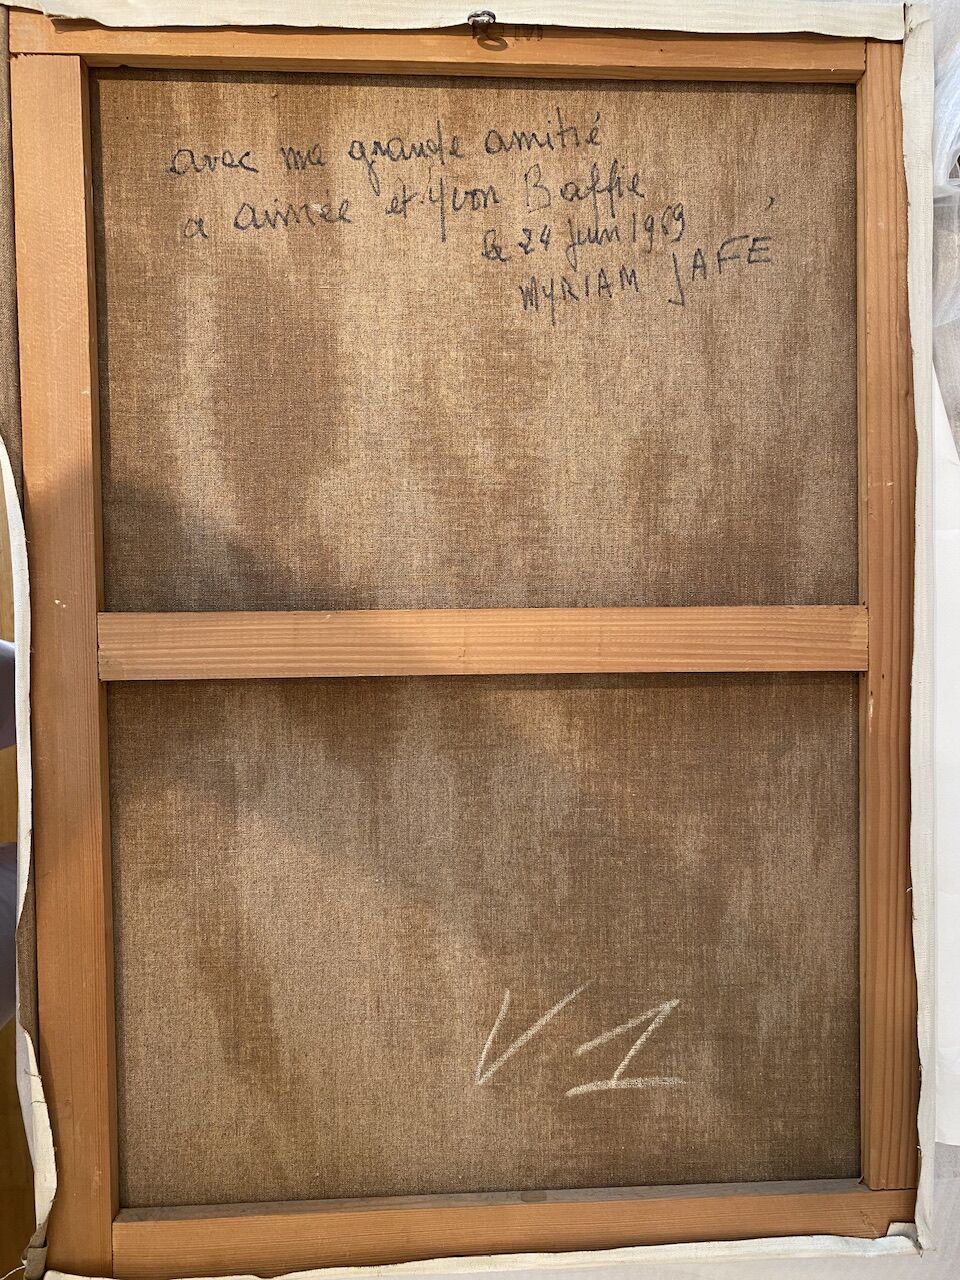 avec ma grande amitié
a aimée et Yvon Baffie
le 24 juin 1969
MYRIAM JAFÉ
V 1